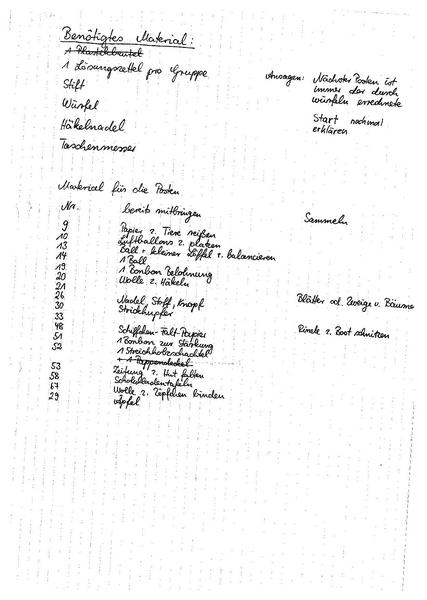 Benötigtes Material:
1 Plastikbeutel
1 Lösungszettel pro Gruppe
Stift
Würfel
Häkelnadel
Taschenmesser
Ansagen: Nächster Posten ist
immer der durch
würfeln errechnete
Start nochmal
erklären
Material für die Posten
Nr. bereits mitbringen Sammeln
9 Papier z. Tiere reißen
12 Luftballons z. platzen
13 Ball + kleiner Löffel z. balancieren
14 1 Ball
19 1 Bonbon Belohnung
20 Wolle z. Häkeln
21
26 Nadel, Stoff, Knopf Blätter od. Zweige v. Bäume
30 Strickhupfer
33
48 Schiffchen-Falt-Papier Rinde z. Boot schnitzen
51 1 Bonbon zur Stärkung
52 1 Streichholzschachtel
+ 1 Pappendeckel
53 Zeitung z. Hut falten
58 Schokoladentafeln
67 Wolle z. Zöpfchen binden
29 Äpfel